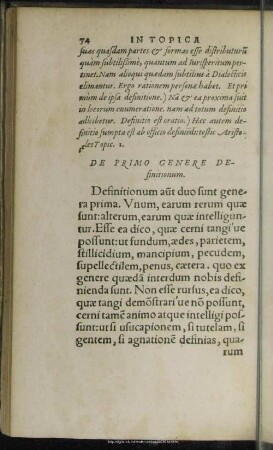 74 IN TOPICA
suas quasdam partes & formas esse distributurũ
quàm subtilissimè, quantum ad Iurisperitum per-
tinet. Nam alioqui quædam subtilius à Dialecticis
elimantur. Ergo rationem personæ habet. Et pri
mùm de ipsa definitione.) Nã & ea proxima fuit
in locorum enumeratione. nam ad totum definitio
adhibetur. Definitio est oratio.) Hæc autem de-
finitio sumpta est ab officio definiendi testis Aristo-
teles Topic. 1.
DE PRIMO GENERE DE-
finitionum.
Definitionum aũt duo sunt gene
ra prima. Vnum, earum rerum quæ
sunt: alterum, earum quæ intelligũn-
tur. Esse ea dico, quæ cerni tangi'ue
possunt: ut fundum, ædes, parietem,
stillicidium, mancipium, pecudem,
supellectilem, penus, cætera. quo ex
genere quædã interdum nobis defi-
nienda sunt. Non esse rursus, ea dico,
quæ tangi demõstrari'ue nõ possunt,
cerni tamẽ animo atque intelligi pos-
sunt: ut si usucapionem, si tutelam, si
gentem, si agnationẽ definias, qua-
rum